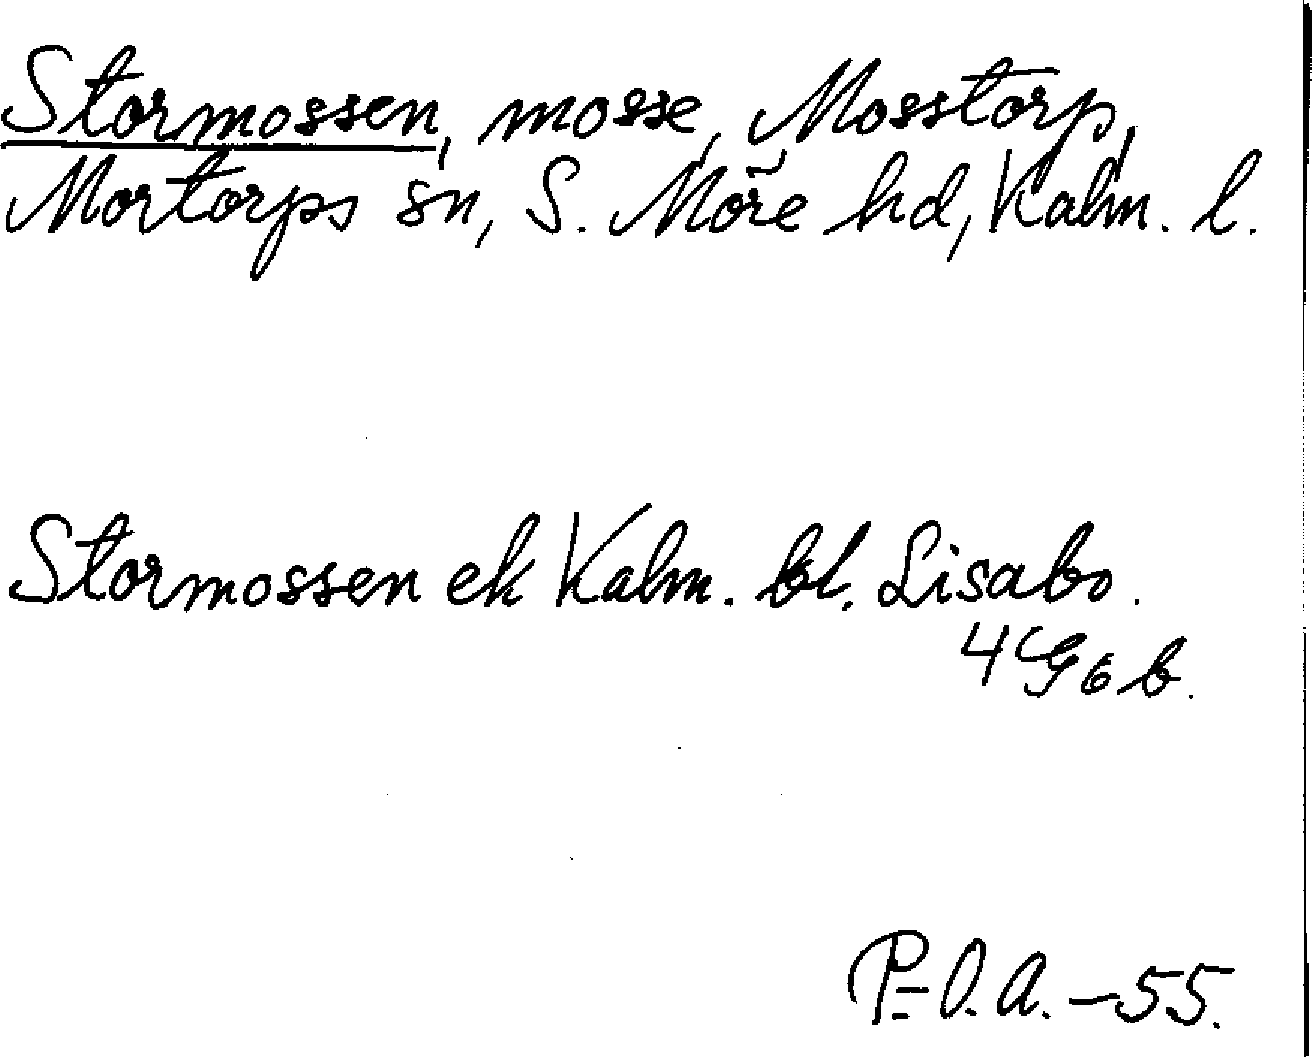 Stormossen, mosse, Mosstorp,
Mortorps sn, S. Möre hd, Kalm. l.
Stormossen ek Kalm. bl. Lisabo.
4G6b.
P=O.A.-55.